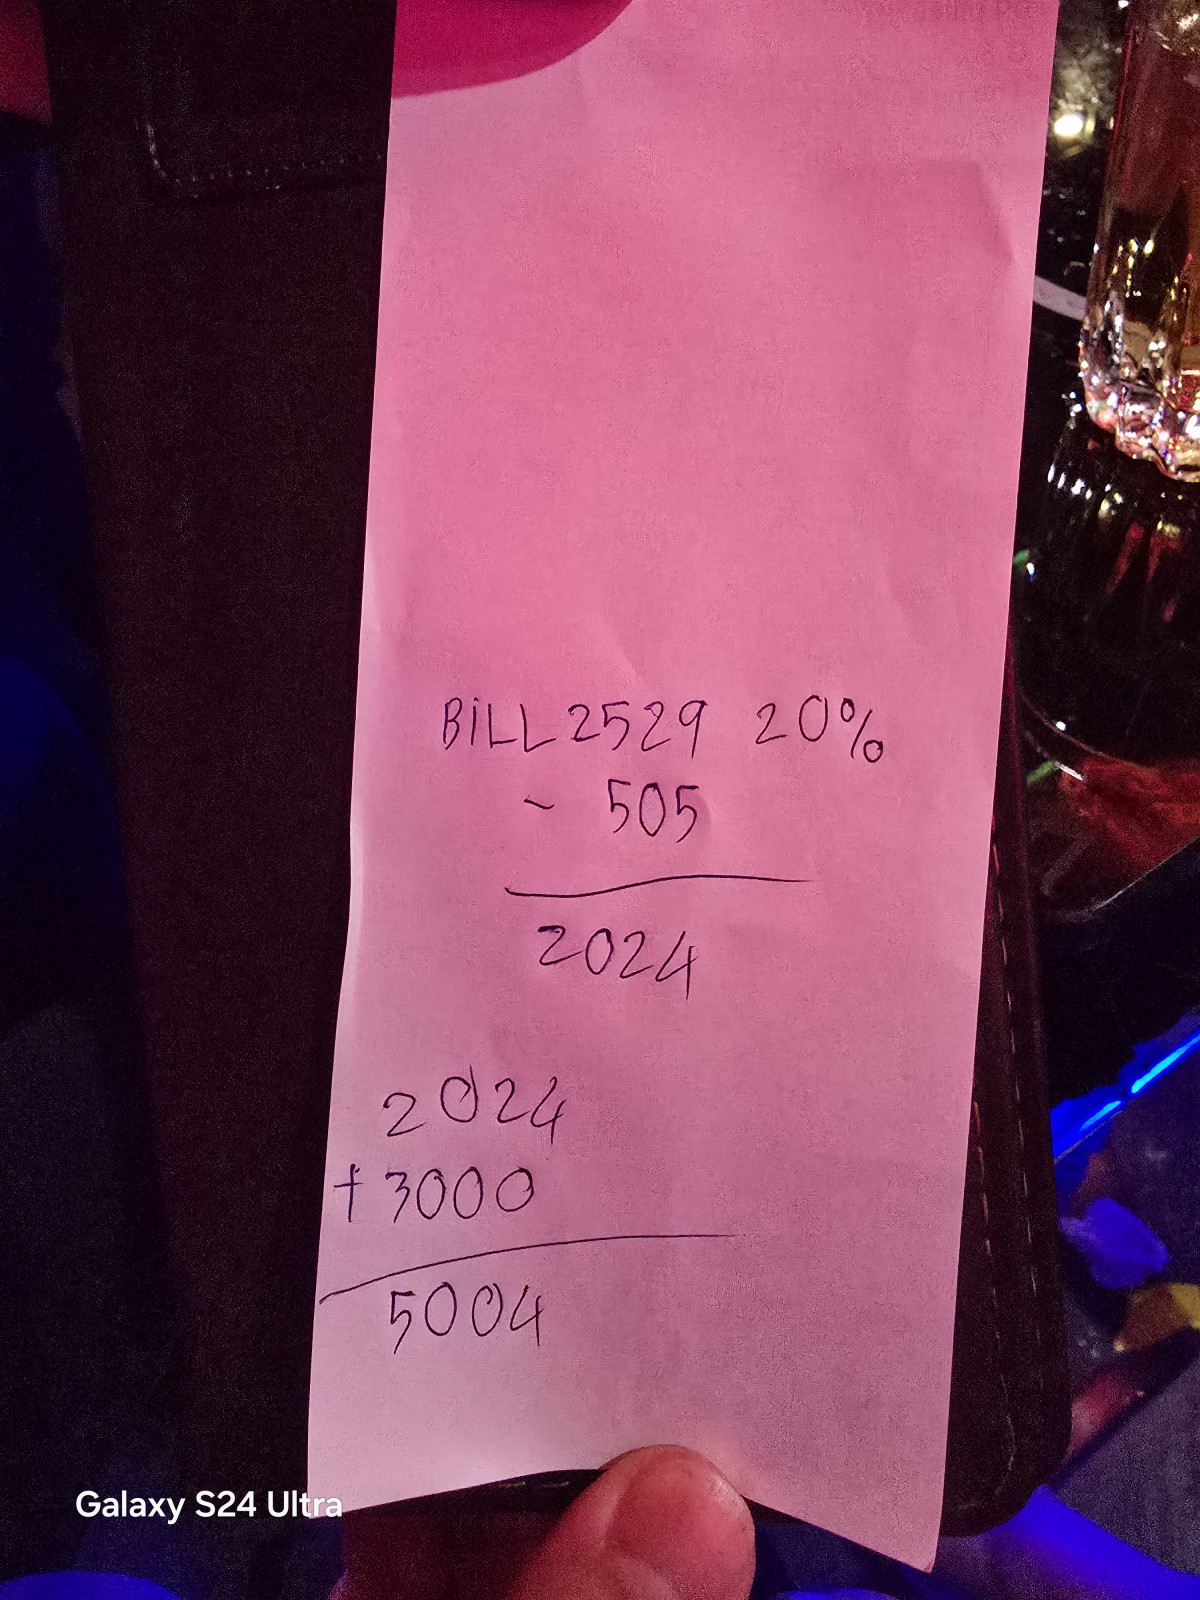 BiLL 2529 20%
- 505
2024
2024
+ 3000
5004
Galaxy S24 Ultra